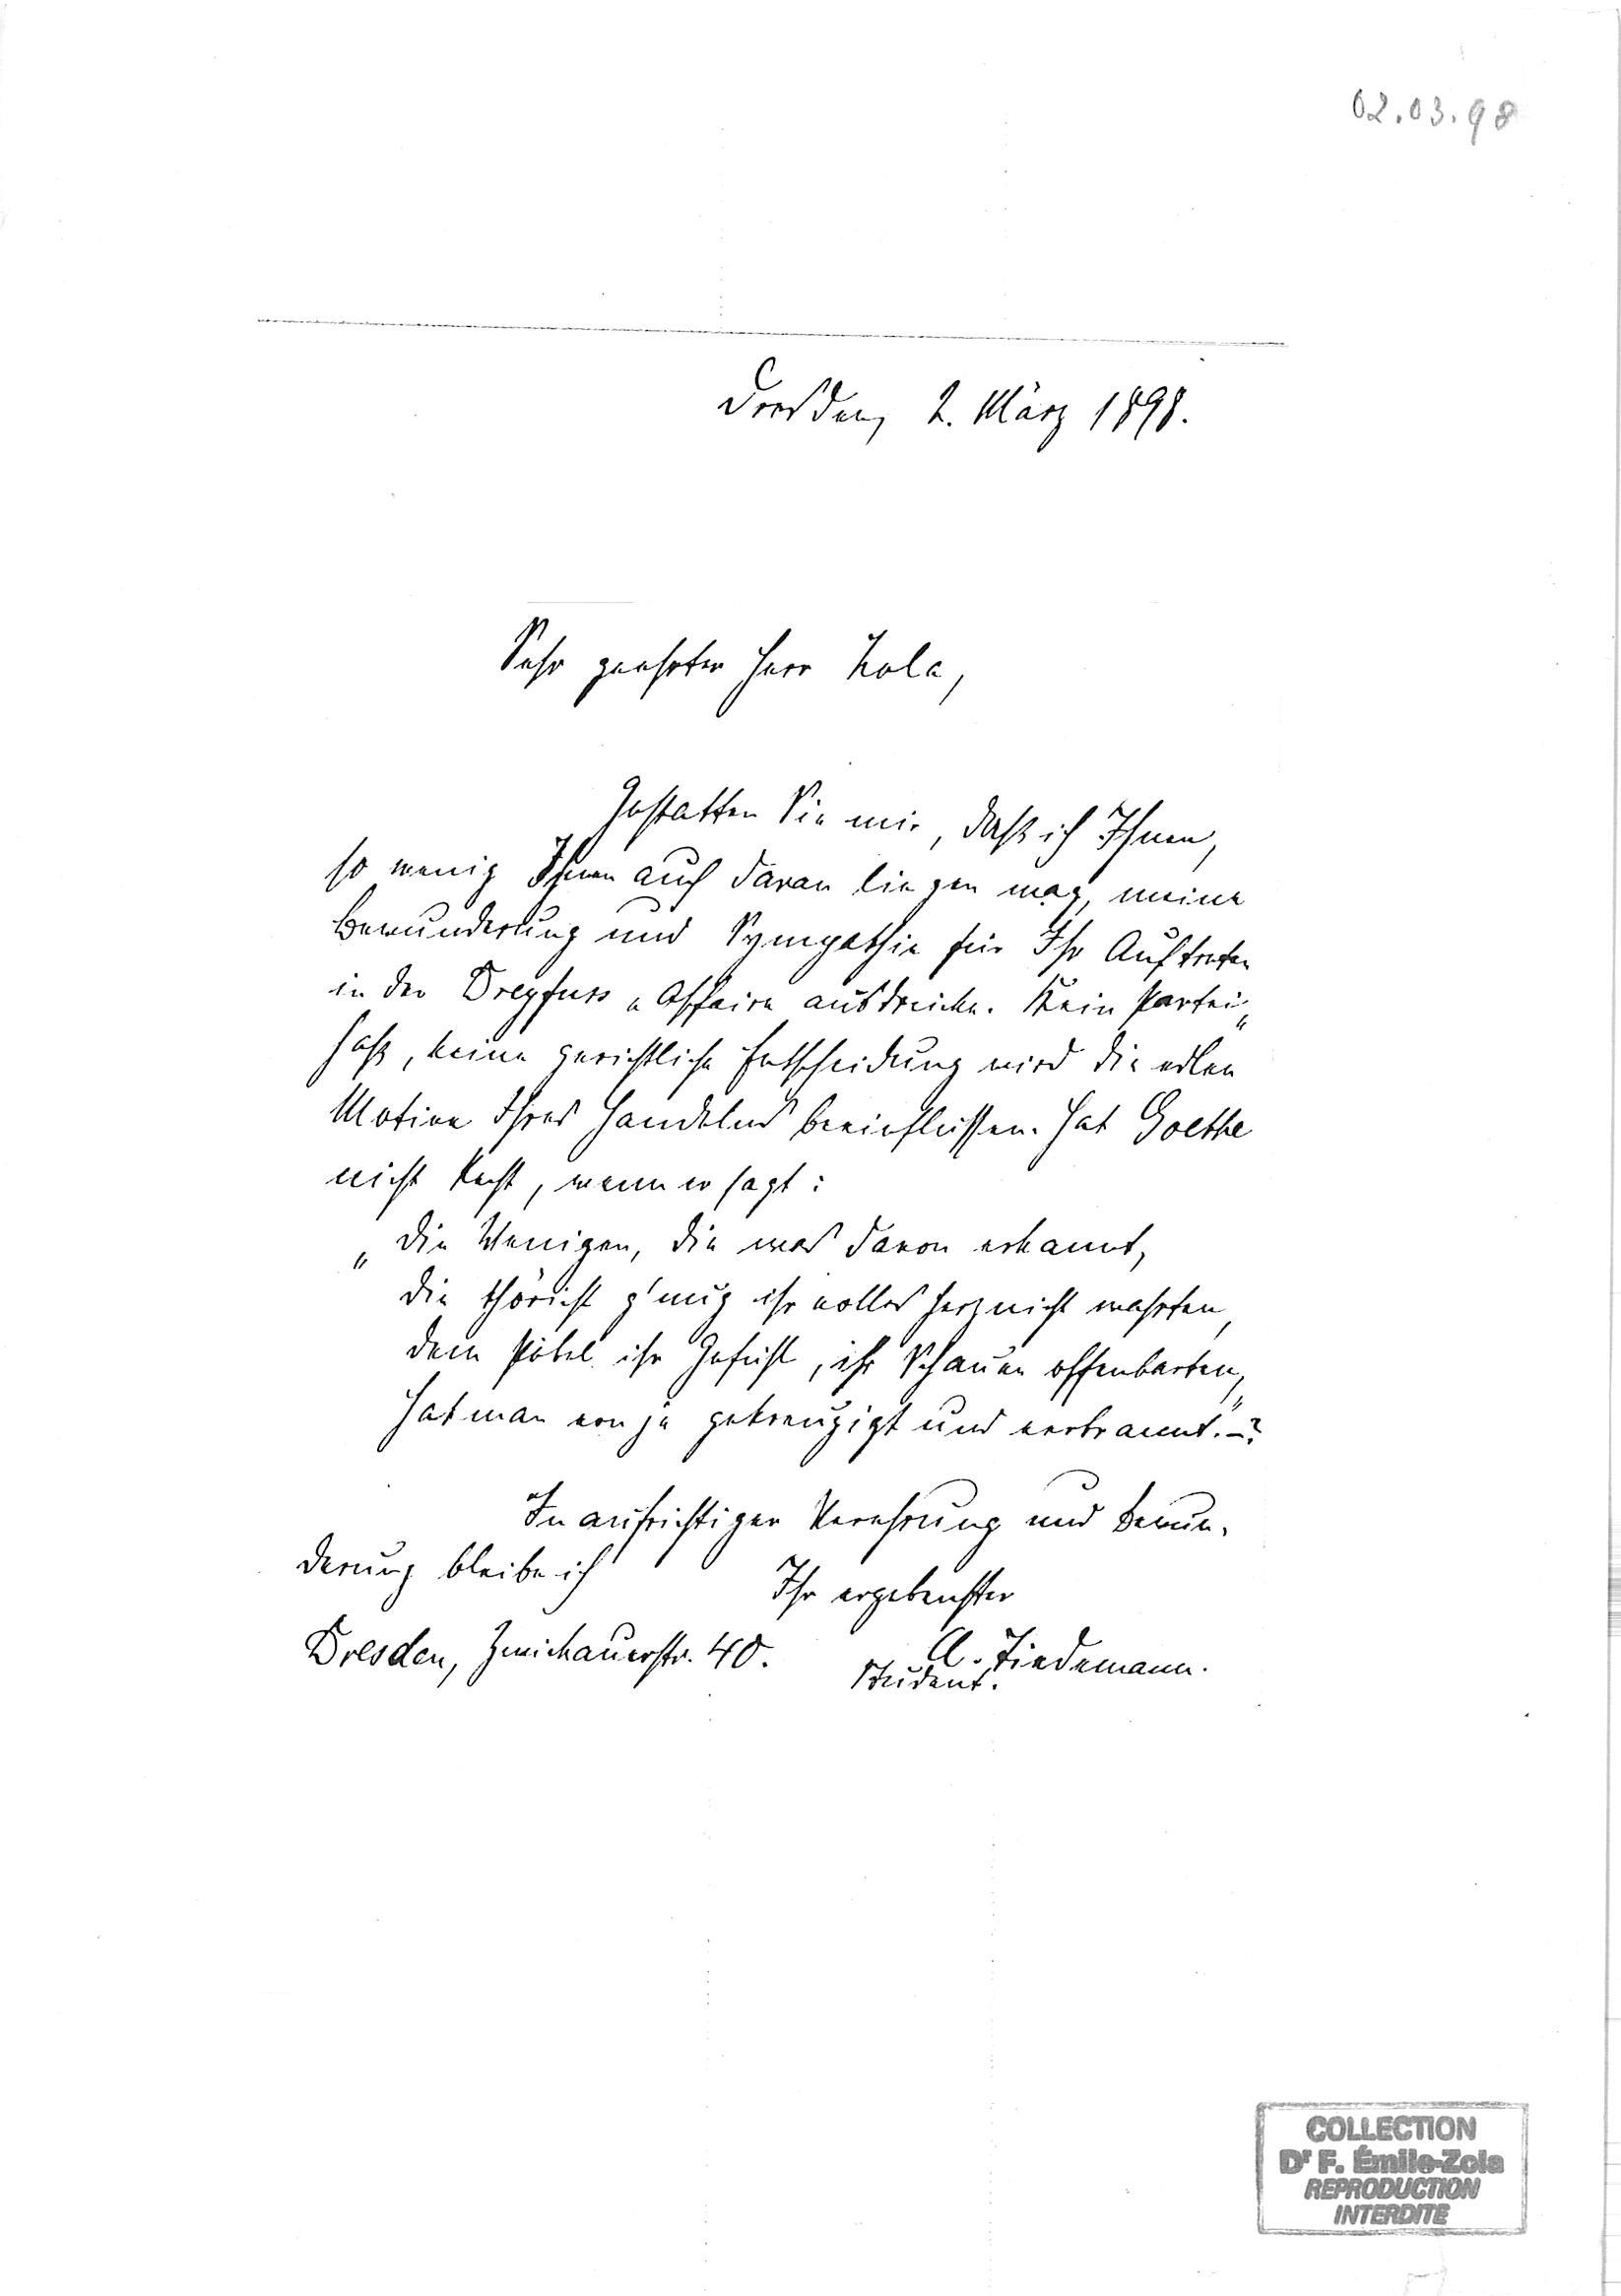 02.03.98
Dresden, 2. März 1898.
Sehr geehrter Herr Zola,
Gestatten Sie mir, daß ich Ihnen,
so wenig Ihnen auch daran liegen mag, meine
Bewunderung und Sympathie für Ihr Auftreten
in der Dreyfuss-Affaire ausdrücke. Kein Partei-
haß, keine gerichtliche Entscheidung wird die edlen
Motive Ihres Handelns beeinflussen. Hat Goethe
nicht Recht, wenn er sagt:
„Die Wenigen, die was davon erkannt,
die thöricht g'nug ihr volles Herz nicht wahrten,
dem Pöbel ihr Gefühl, ihr Schauen offenbarten,
hat man von je gekreuzigt und verbrannt." –?
In aufrichtiger Verehrung und Bewun-
derung bleibe ich
Ihr ergebenster
A. Tiedemann.
Student.
Dresden, Zwickauerstr. 40.
COLLECTION
Dr F. Émile-Zola
REPRODUCTION
INTERDITE